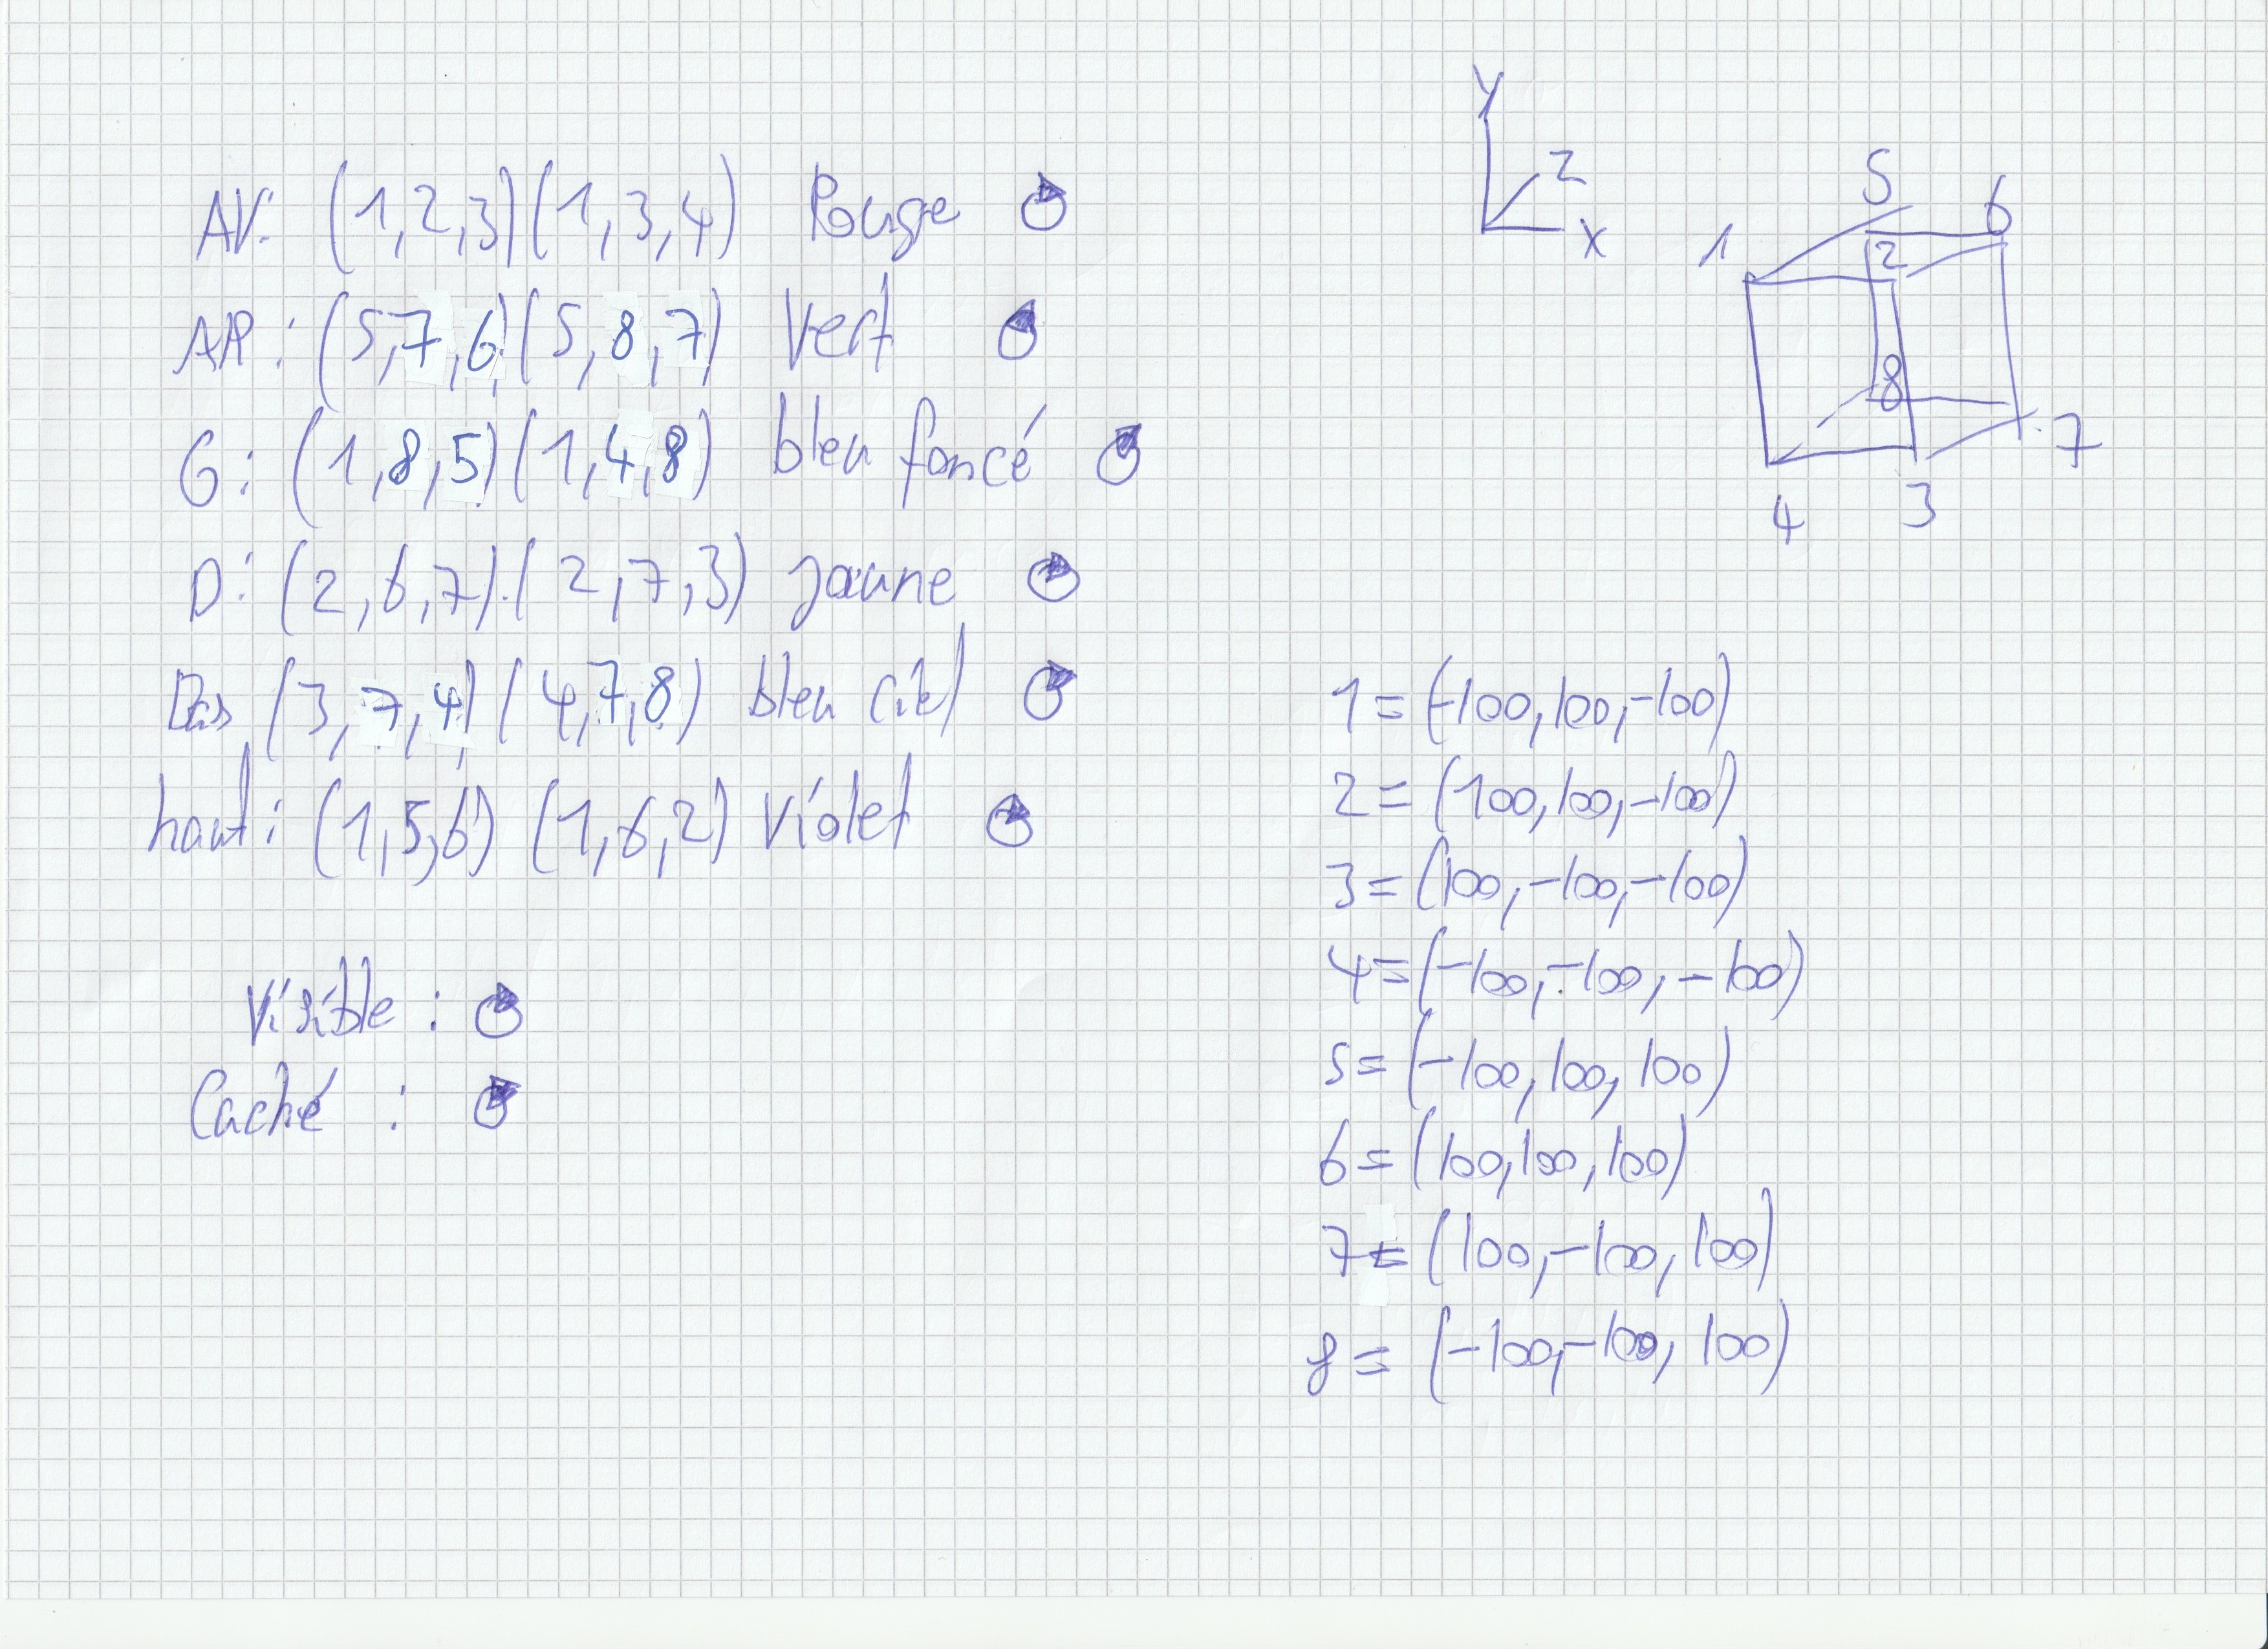 AV: (1,2,3)(1,3,4) Rouge
AR: (5,7,6)(5,8,7) Vert
G: (1,8,5)(1,4,8) bleu foncé
D: (2,6,7)(2,7,3) jaune
Bas (3,7,4)(4,7,8) bleu ciel
haut: (1,5,6) (1,6,2) Violet
Visible :
Caché :
y
z
x
5
6
1
2
8
7
4
3
1 = (-100,100,-100)
2 = (100,100,-100)
3 = (100,-100,-100)
4 = (-100,-100,-100)
5 = (-100,100,100)
6 = (100,100,100)
7 = (100,-100,100)
8 = (-100,-100,100)